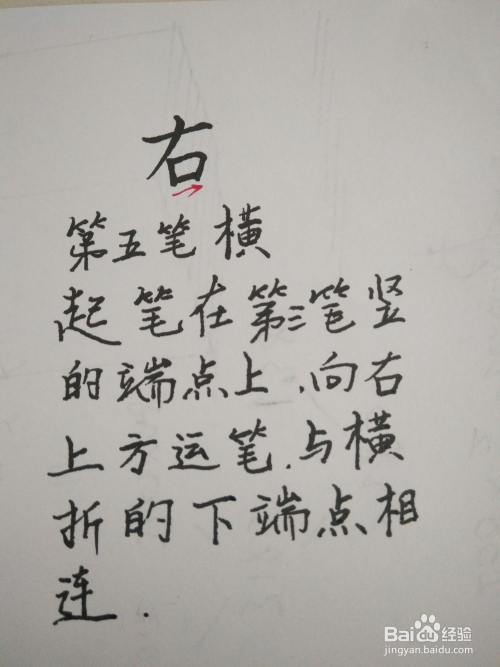 右
第五笔横
起笔在第三笔竖
的端点上,向右
上方运笔,与横
折的下端点相
连.
Baidu经验
jingyan.baidu.com